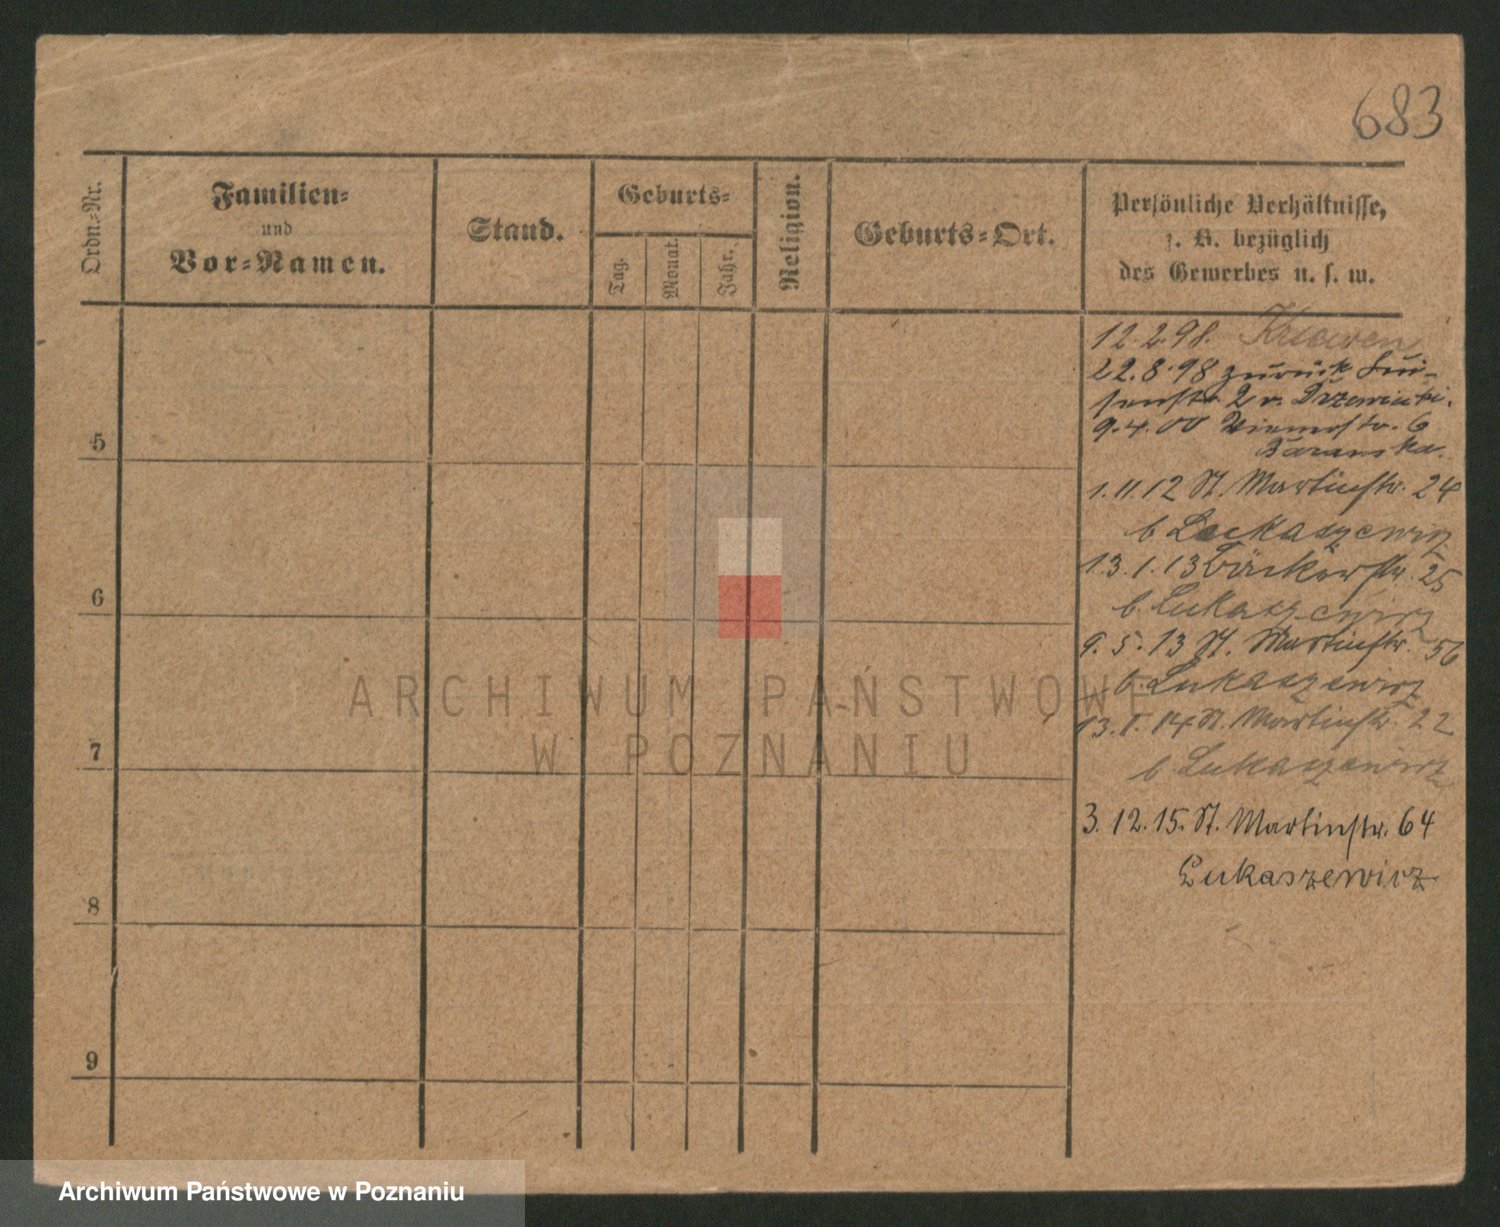 683
Ordn.-Nr.
Familien-
und
Vor-Namen.
Stand.
Geburts-
Tag.
Monat.
Jahr.
Religion.
Geburts-Ort.
Persönliche Verhältnisse,
z. B. bezüglich
des Gewerbes u. s. w.
12.2.98. Kriewen
22.8.98 zurück Lui-
senstr. 2 v.
9.4.00 6
Baranska.
5
1.11.12 St. Martinstr. 24
b Luckaszewicz
13.1.13 Bäckerstr. 25
b. Lukaszewicz
6
9.5.13 St. Martinstr. 56
b. Lukaszewicz
13. 14 St. Martinstr. 22
b Lukaszewicz
7
3.12.15. St. Martinstr. 64
Lukaszewicz
8
9
ARCHIWUM PAŃSTWOWE
W POZNANIU
Archiwum Państwowe w Poznaniu